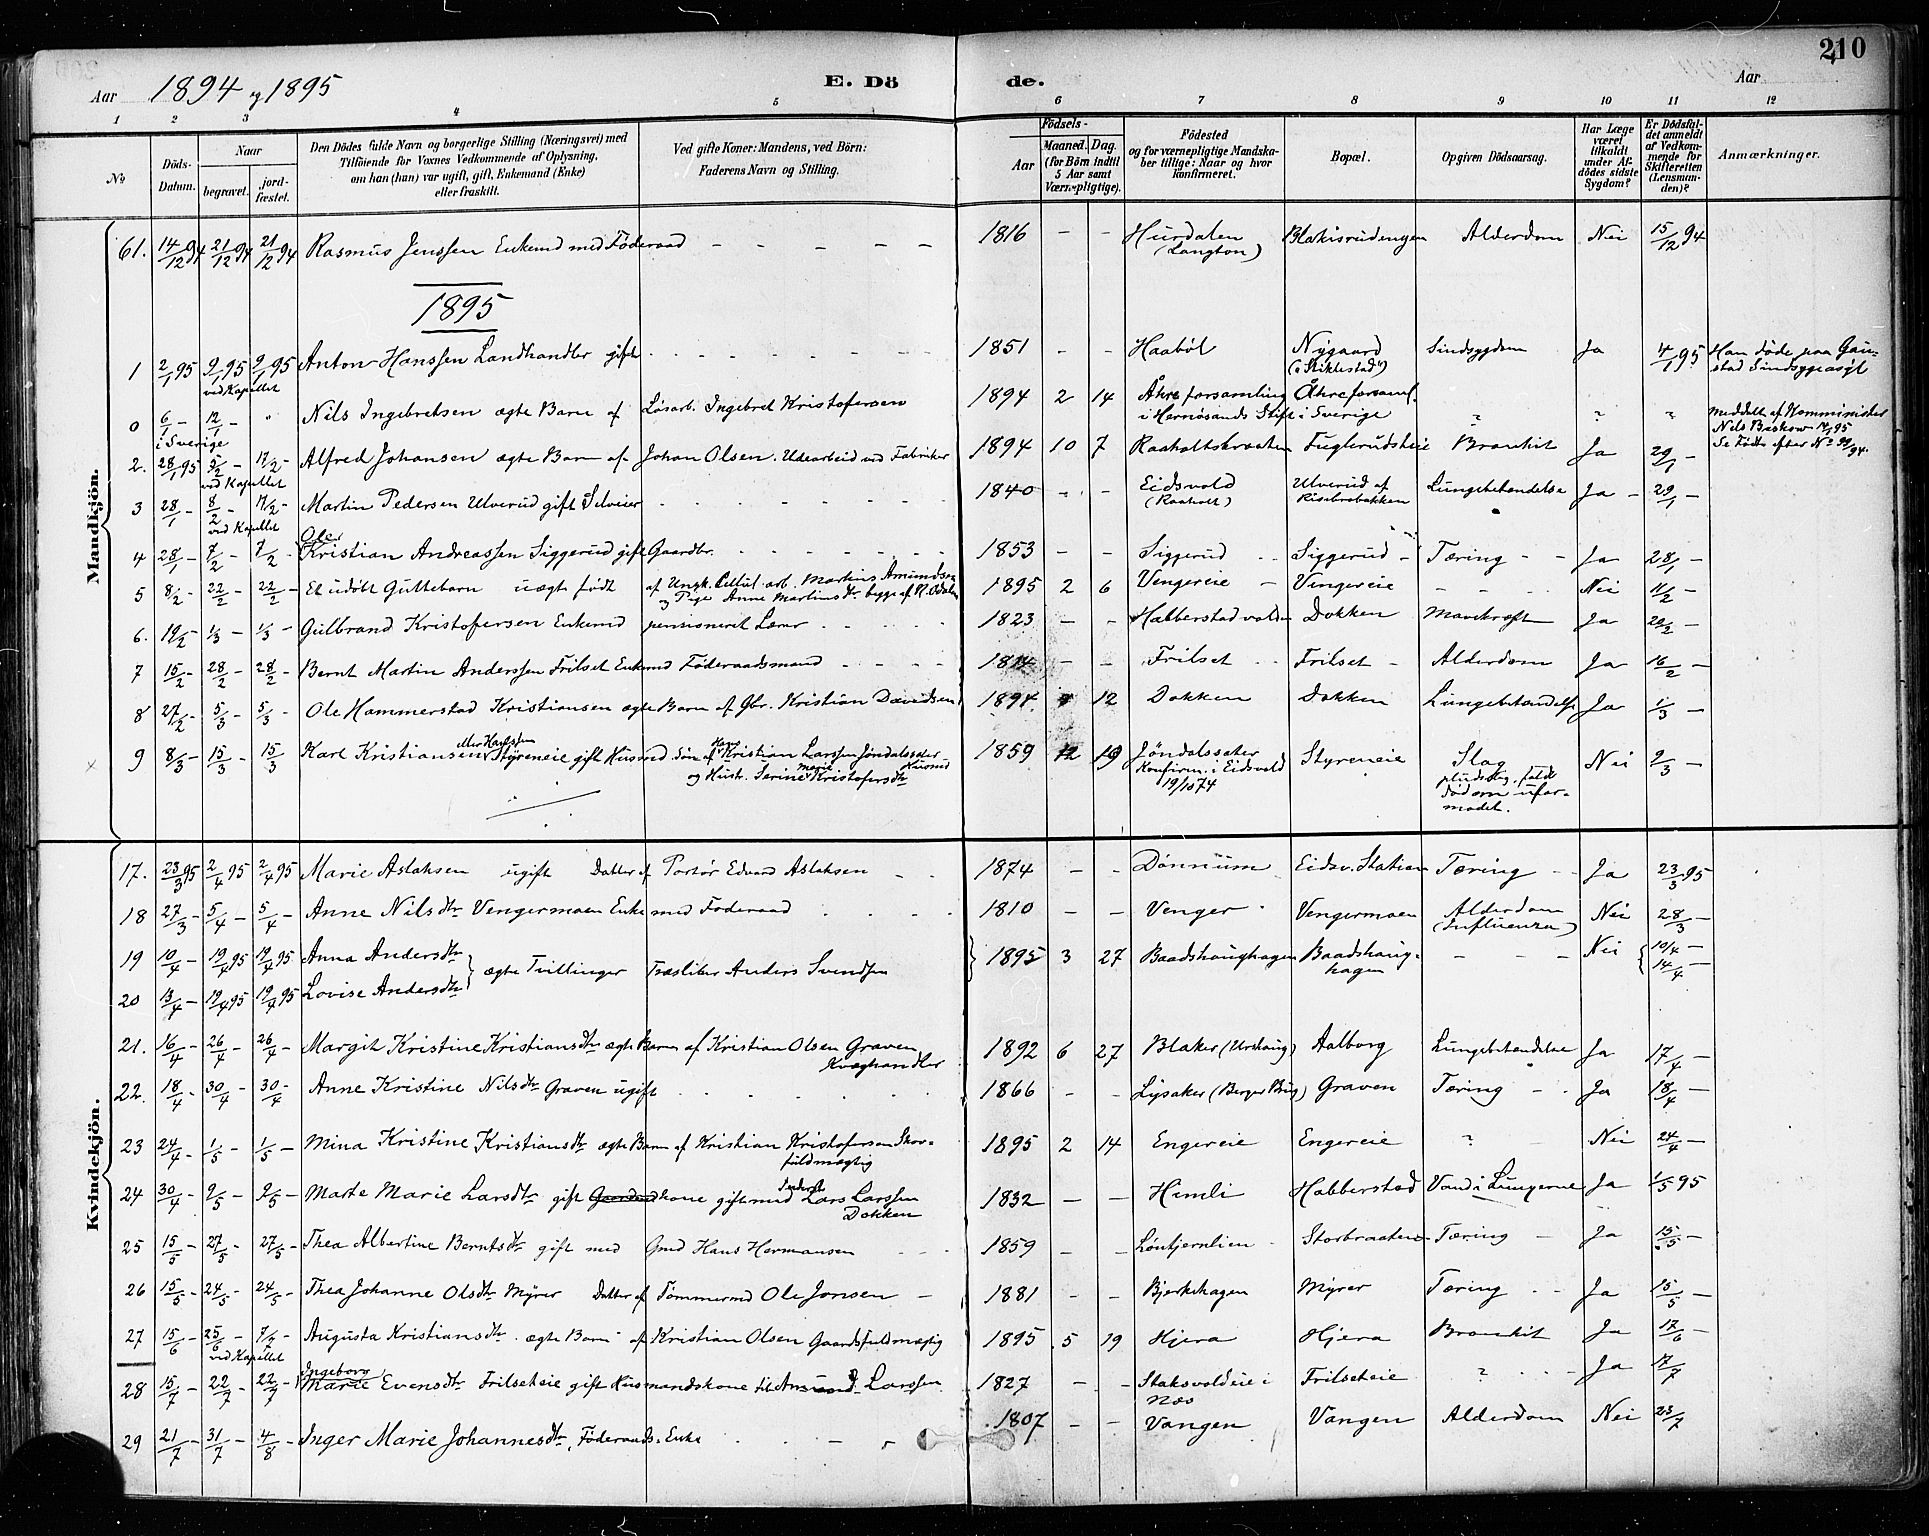 210
Aar 1894 og 1895 E. Dö de. Aar
1 2 3 4 5 6 7 8 9 10 11 12
No
Döds-Datum.
Naar
begravet.
jord-fæstet.
Den Dödes fulde Navn og borgerlige Stilling (Næringsvei) med
Tilföiende for Voxnes Vedkommende af Oplysning,
om han (hun) var ugift, gift, Enkemand (Enke)
eller fraskilt.
Ved gifte Koner: Mandens, ved Börn:
Faderens Navn og Stilling.
Födsels-
Aar
Maaned. Dag.
(for Börn indtil
5 Aar samt
Værnepligtige).
Födested
og for værnepligtige Mandska-
ber tillige: Naar og hvor
konfirmeret.
Bopæl.
Opgiven Dödsaarsag.
Har Læge
været
tilkaldt
under Af-
dödes sidste
Sygdom?
Er Dödsfal-
det anmeldt
af Vedkom-
mende for
Skifteretten
(Lensman-
den)?
Anmærkninger.
Mandkjön.
61. 14/12 94 21/12 94 21/12 94 Rasmus Jenssen Enkemd med Föderaad – – – – – 1816 – – Hurdalen (Langton) Blakisrudengen Alderdom Nei 15/12 94
1895
1 2/1 95 9/1 95 9/1 95 Anton Hanssen Landhandler gift 1851 – – Haaböl Nygaard (i "Stiklestad") Sindsygdom Ja 4/1 95 Han döde paa Gau-
ved Kapellet stad Sindsygeasyl
0 6/1 – 12/1 – " Nils Ingebretsen ægte Barn af Lösarb. Ingebret Kristofersen 1894 2 14 Åhre forsamling Åhre forsaml. ? ? " Meddelt af Komminister
i Sverige i Hernösands Stift i Sverige Nils Biskow 14/1 95
Se Födte efter No 99/94.
2. 28/1 95 5/2 – 17/2 – Alfred Johansen ægte Barn af Johan Olsen. Udearbeid ved Fabriker 1894 10 7 Raaholtsbraaten Fuglerudsteie Bronkit Ja 29/1 –
ved Kapellet
3 28/1 – 8/2 – 17/2 – Martin Pedersen Ulverud gift Selveier 1840 – – Eidsvold (Raaholt) Ulverud af Risebrobakken Lungebetændelse Ja – 29/1 –
ved Kapellet
Ole
4 28/1 – 7/2 – 7/2 – Kristian Andreassen Siggerud gift Gaardbr. 1853 – – Siggerud Siggerud Tæring Ja 28/1 –
5 8/2 – 22/2 – 22/2 – Et udöbt Guttebarn uægte födt af Ungk. Cellul. arb. Martins Amundsen 1895 2 6 Vengereie – Vengereie – – Nei 11/2 –
og Pige Anne Martinsdtr begge af N. Odalen
6. 19/2 – 1/3 – 1/3 – Gulbrand Kristofersen Enkemd pensioneret Lærer 1823 – – Habberstadvolden Dokken Mavekræft Ja 20/2 –
7 15/2 – 28/2 – 28/2 – Bernt Martin Anderssen Frilset Enkemd Föderaadsmand 1814 – – Frilset Frilset – Alderdom Ja 16/2 –
8 27/2 – 5/3 – 5/3 – Ole Hammerstad Kristiansen ægte Barn af Gbr. Kristian Davidsen 1894 12 Dokken Dokken Lungebetændelse Ja 1/3 –
9 8/3 – 15/3 – 15/3 Karl Kristiansen eller Karlssen Styreneie gift Husmd Sön af Hans Kristian Larssen Jöndalssæter Husmd 1859 12 19 Jöndalssæter Styreneie Slag Nei 9/3 –
og Hust. Serine Marie Kristofersdtr Konfirm. i Eidsvold 19/10 74 pludselig, faldt död om ufor-modet.
Kvindekjön.
17. 23/3 95 2/4 95 2/4 95 Marie Aslaksen ugift Datter af Portör Edvard Aslaksen 1874 – – Dönnum Eidsv. Station Tæring Ja 23/3 95
18 27/3 – 5/4 – 5/4 – Anne Nilsdtr Vengermoen Enke med Föderaad 1810 – – Venger Vengermoen Alderdom (Influenza) Nei 28/3 –
19 10/4 – 19/4 95 19/4 95 Anna Andersdtr } ægte Tvillinger Træsliber Anders Svendsen } 1895 3 27 Baadshaughagen Baadshaug-hagen – – – Nei { 10/4 –
20 13/4 – 19/4 95 19/4 95 Lovise Andersdtr 14/4 –
21. 16/4 – 26/4 – 26/4 – Margit Kristine Kristiansdtr ægte Barn af Kristian Olsen Graven 1892 6 27 Blaker (Urshaug) Aalborg Lungebetændelse Ja 17/4 –
Kvæghandler
22. 18/4 – 30/4 – 30/4 – Anne Kristine Nilsdtr Graven ugift 1866 – – Lysaker (Berger Brug) Graven Tæring – Ja 18/4 –
23 24/4 – 1/5 – 1/5 – Mina Kristine Kristiansdtr ægte Barn af Kristian Kristofersen Skov- 1895 2 14 Engereie Engereie ? Nei 24/4 –
fuldmægtig
24 30/4 – 9/5 – 9/5 – Marte Marie Larsdtr gift Gaardmdkone gift med Inderst Lars Larssen 1832 – – Himli Habberstad Vand i Lungerne Ja 1/5 95
Dokken
25 15/5 – 27/5 – 27/5 – Thea Albertine Berntsdtr gift med Gmd Hans Hermansen 1859 – – Löntjernlien Storbraaten Tæring – Ja 15/5 –
26 15/5 – 24/5 – 24/5 – Thea Johanne Olsdtr Myrer Datter af Tömmermd Ole Jonsen – 1881 – – Bjerkehagen Myrer Tæring Ja 15/5 –
27 15/6 – 25/6 – 7/7 – Augusta Kristiansdtr ægte Barn af Kristian Olsen Gaardsfuldmægtig 1895 5 19 Hjera Hjera Bronkit Ja 17/6 –
ved Kapellet
Ingeborg
28 15/7 – 22/7 – 22/7 – Marie Evensdtr Frilseteie gift Husmandskone til Amund Larssen 1827 – – Staksvoldeie i Næs Frilseteie ? Ja 17/7
29 21/7 – 31/7 – 4/8 – Inger Marie Johannesdtr, Föderaads-Enke 1807 – – Vangen Vangen Alderdom Nei 23/7